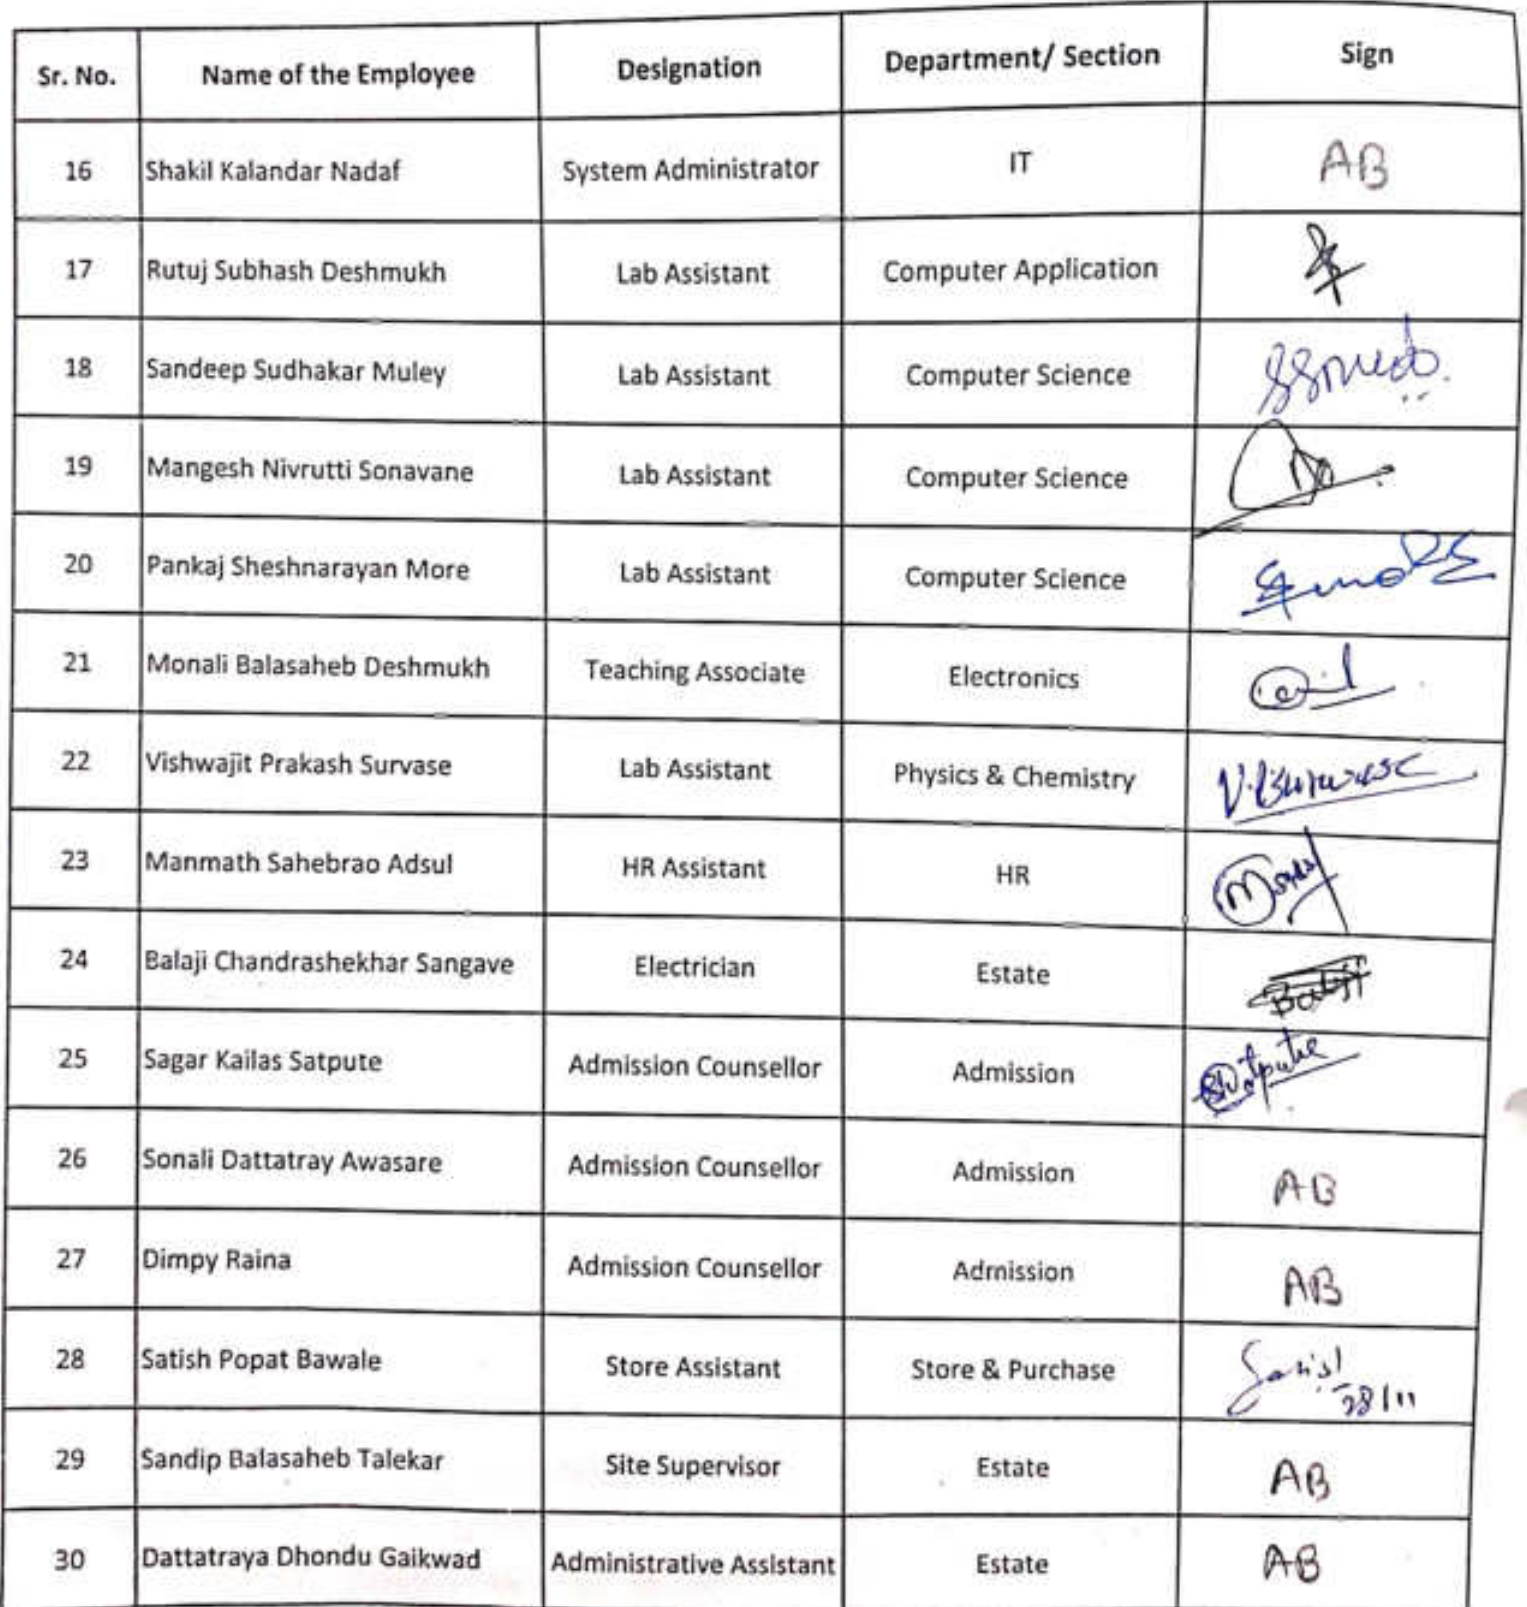 Sr. No. Name of the Employee Designation Department/ Section Sign
16 Shakil Kalandar Nadaf System Administrator IT AB
17 Rutuj Subhash Deshmukh Lab Assistant Computer Application
18 Sandeep Sudhakar Muley Lab Assistant Computer Science
19 Mangesh Nivrutti Sonavane Lab Assistant Computer Science
20 Pankaj Sheshnarayan More Lab Assistant Computer Science
21 Monali Balasaheb Deshmukh Teaching Associate Electronics
22 Vishwajit Prakash Survase Lab Assistant Physics & Chemistry
23 Manmath Sahebrao Adsul HR Assistant HR
24 Balaji Chandrashekhar Sangave Electrician Estate
25 Sagar Kailas Satpute Admission Counsellor Admission
26 Sonali Dattatray Awasare Admission Counsellor Admission AB
27 Dimpy Raina Admission Counsellor Admission AB
28 Satish Popat Bawale Store Assistant Store & Purchase 28/11
29 Sandip Balasaheb Talekar Site Supervisor Estate AB
30 Dattatraya Dhondu Gaikwad Administrative Assistant Estate AB